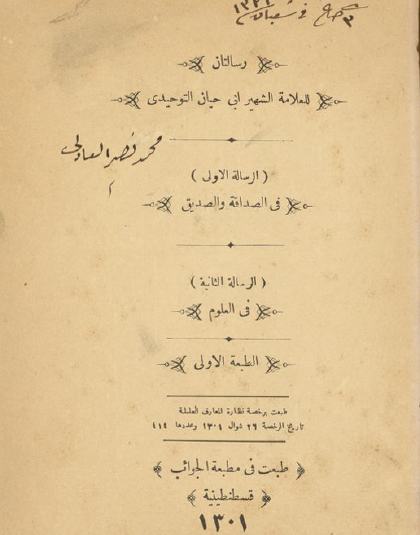 في شعبان ١٣٢٢
رسالتان
للعلامة الشهير ابى حيان التوحيدى
محمد نصر العادلي
( الرسالة الاولى )
فى الصداقة والصديق
( الرسالة الثانية )
فى العلوم
الطبعة الاولى
طبعت برخصة نظارة المعارف الجليلة
تاريخ الرخصة ٢٦ شوال ١٣٠١ وعددها ٤١٤
طبعت فى مطبعة الجوائب
قسطنطينية
١٣٠١